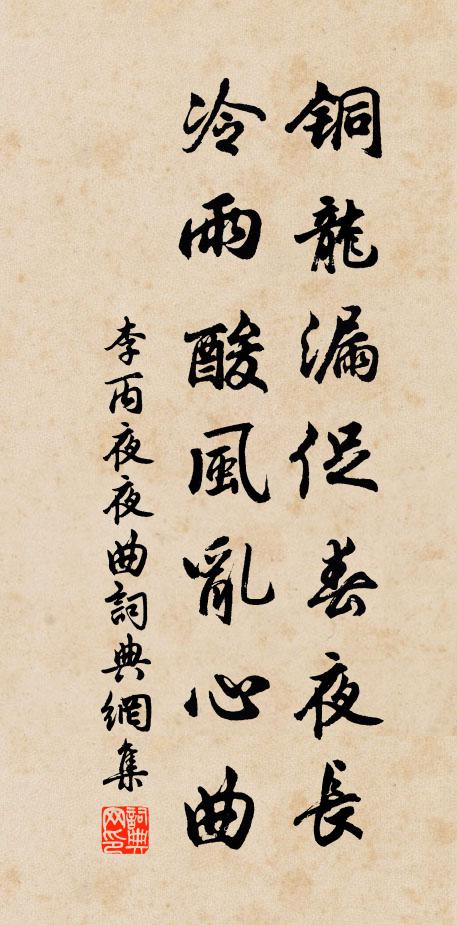 铜龍漏促春夜長
冷雨酸風亂心曲
李丙夜夜曲詞典網集
詞典网印